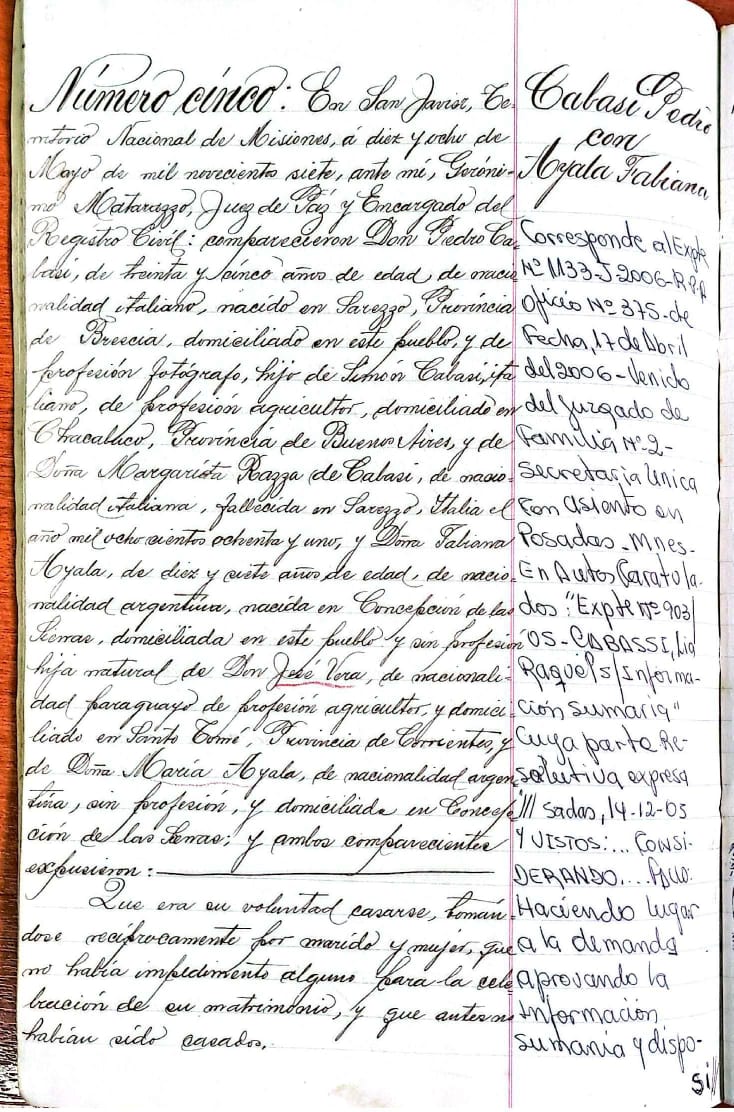 Número cinco: En San Javier, Te-
rritorio Nacional de Misiones, á diez y ocho de
Mayo de mil novecientos siete, ante mí, Geróni-
mo Matarazzo, Juez de Paz y Encargado del
Registro Civil: comparecieron Don Pedro Ca-
basi, de treinta y cinco años de edad, de nacio-
nalidad italiano, nacido en Sarezzo, Provincia
de Brescia, domiciliado en este pueblo, y de
profesión fotógrafo, hijo de Simón Cabasi, ita
liano, de profesión agricultor, domiciliado en
Chacabuco, Provincia de Buenos Aires, y de
Doña Margarita Razza de Cabasi, de nacio-
nalidad italiana, fallecida en Sarezzo, Italia el
año mil ochocientos ochenta y uno, y Doña Fabiana
Ayala, de diez y siete años de edad, de nacio-
nalidad argentina, nacida en Concepción de las
Sierras, domiciliada en este pueblo y sin profesión
hija natural de Don José Vera, de nacionali-
dad paraguayo de profesión agricultor, y domici-
liado en Santo Tomé, Provincia de Corrientes, y
de Doña María Ayala, de nacionalidad argen
tina, sin profesión, y domiciliada en Concep
ción de las Sierras; y ambos comparecientes
expusieron:
Que era su voluntad casarse, toman-
dose recíprocamente por marido y mujer, que
no había impedimento alguno para la cele
bración de su matrimonio, y que antes no
habían sido casados.
Cabasi Pedro
con
Ayala Fabiana
Corresponde al Expte
Nº 1133-J-2006-R.P.P
Oficio Nº 375-de
Fecha, 17 de Abril
del 2006-Venido
del Juzgado de
Familia Nº 2-
Secretaria Unica
con asiento en
Posadas-Mnes-
En Autos Caratula-
dos: "Expte Nº 903/
05-CABASSI, Lia
Raquel S/Informa-
ción Sumaria"
Cuya parte Re-
solutiva expresa
"/// sadas, 14-12-05
Y VISTOS:... CONSI-
DERANDO...
Haciendo lugar
a la demanda
aprovando la
Información
sumaria y dispo-
si//